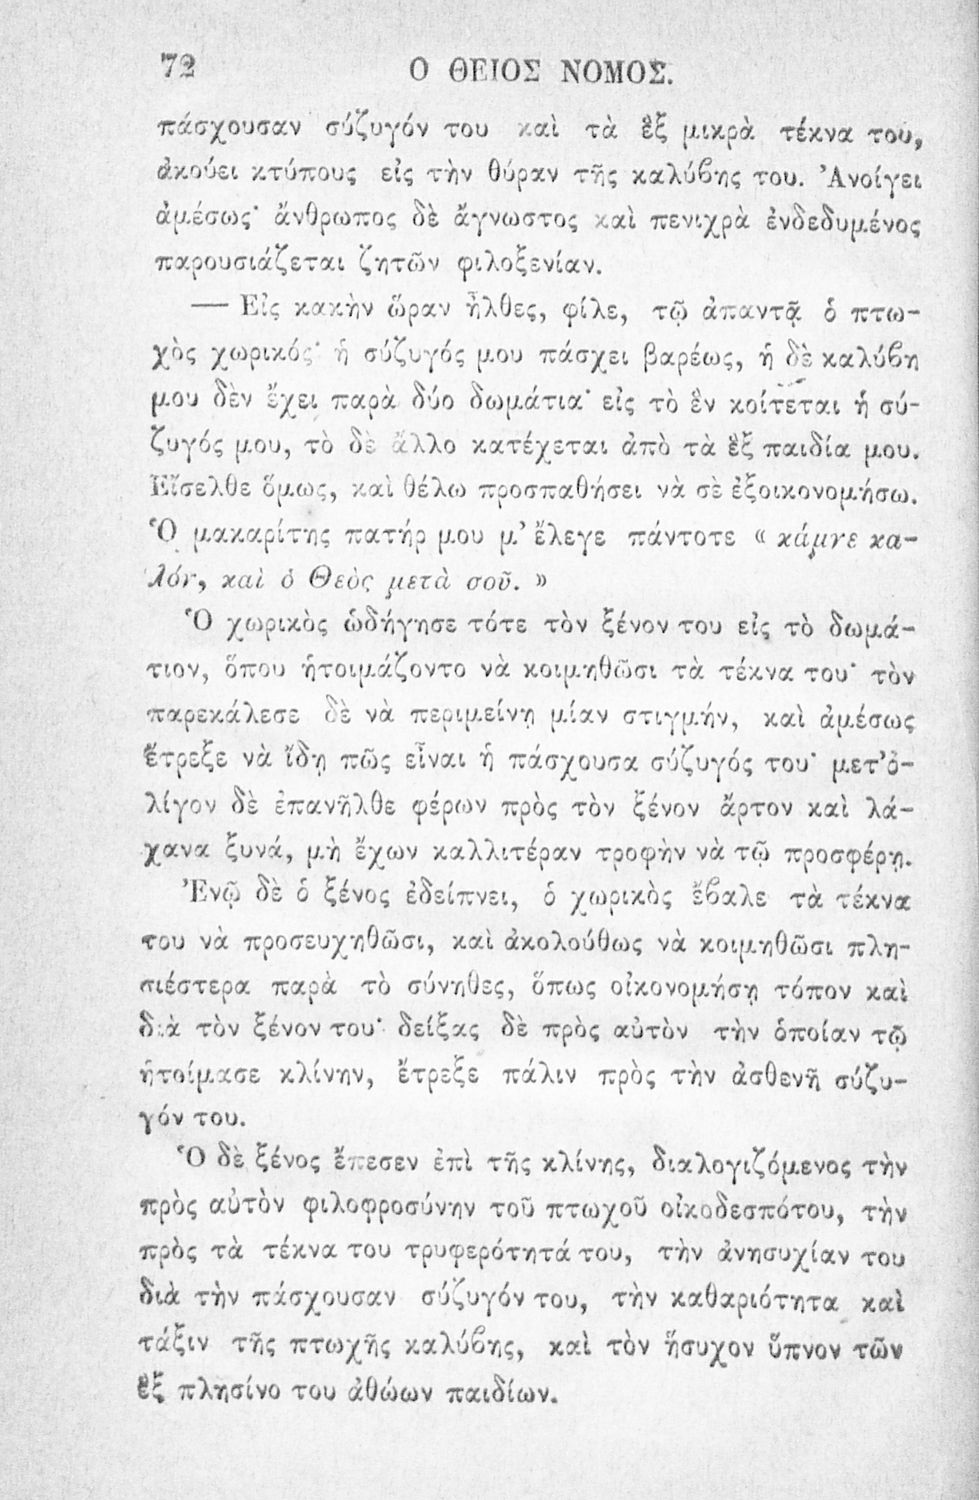 72 Ο ΘΕΙΟΣ ΝΟΜΟΣ.
πάσχουσαν σύζυγόν του καὶ τὰ ἓξ μικρὰ τέκνα του,
ἀκούει κτύπους εἰς τὴν θύραν τῆς καλύβης του. Ἀνοίγει
ἀμέσως· ἄνθρωπος δὲ ἄγνωστος καὶ πενιχρὰ ἐνδεδυμένος
παρουσιάζεται ζητῶν φιλοξενίαν.
— Εἰς κακὴν ὥραν ἦλθες, φίλε, τῷ ἀπαντᾷ ὁ πτω-
χὸς χωρικός· ἡ σύζυγός μου πάσχει βαρέως, ἡ δὲ καλύβη
μου δὲν ἔχει παρὰ δύο δωμάτια· εἰς τὸ ἓν κοίτεται ἡ σύ-
ζυγός μου, τὸ δὲ ἄλλο κατέχεται ἀπὸ τὰ ἓξ παιδία μου.
Εἴσελθε ὅμως, καὶ θέλω προσπαθήσει νὰ σὲ ἐξοικονομήσω.
Ὁ μακαρίτης πατήρ μου μ' ἔλεγε πάντοτε « κάμνε κα-
λόν, καὶ ὁ Θεὸς μετὰ σοῦ. »
Ὁ χωρικὸς ὡδήγησε τότε τὸν ξένον του εἰς τὸ δωμά-
τιον, ὅπου ἡτοιμάζοντο νὰ κοιμηθῶσι τὰ τέκνα του· τὸν
παρεκάλεσε δὲ νὰ περιμείνῃ μίαν στιγμήν, καὶ ἀμέσως
ἔτρεξε νὰ ἴδῃ πῶς εἶναι ἡ πάσχουσα σύζυγός του· μετ' ὀ-
λίγον δὲ ἐπανῆλθε φέρων πρὸς τὸν ξένον ἄρτον καὶ λά-
χανα ξυνά, μὴ ἔχων καλλιτέραν τροφὴν νὰ τῷ προσφέρῃ.
Ἐνῷ δὲ ὁ ξένος ἐδείπνει, ὁ χωρικὸς ἔβαλε τὰ τέκνα
του νὰ προσευχηθῶσι, καὶ ἀκολούθως νὰ κοιμηθῶσι πλη-
σιέστερα παρὰ τὸ σύνηθες, ὅπως οἰκονομήσῃ τόπον καὶ
διὰ τὸν ξένον του· δείξας δὲ πρὸς αὐτὸν τὴν ὁποίαν τῷ
ἡτοίμασε κλίνην, ἔτρεξε πάλιν πρὸς τὴν ἀσθενῆ σύζυ-
γόν του.
Ὁ δὲ ξένος ἔπεσεν ἐπὶ τῆς κλίνης, διαλογιζόμενος τὴν
πρὸς αὐτὸν φιλοφροσύνην τοῦ πτωχοῦ οἰκοδεσπότου, τὴν
πρὸς τὰ τέκνα του τρυφερότητά του, τὴν ἀνησυχίαν του
διὰ τὴν πάσχουσαν σύζυγόν του, τὴν καθαριότητα καὶ
τάξιν τῆς πτωχῆς καλύβης, καὶ τὸν ἥσυχον ὕπνον τῶν
ἓξ πλησίνο του ἀθώων παιδίων.